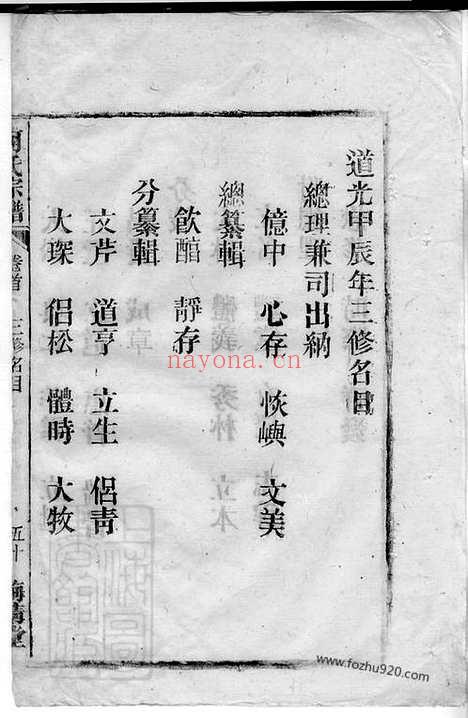 道光甲辰年三修名目
總理兼司出納
億中 心存 恢嶼 文美
總纂輯
飲醕 靜存
分纂輯
文芹 道亨 立生 侶靑
大琛 侶松 體時 大牧
氏宗譜
卷首
三修名目
五十
堂
nayona.cn
www.fozhu920.com